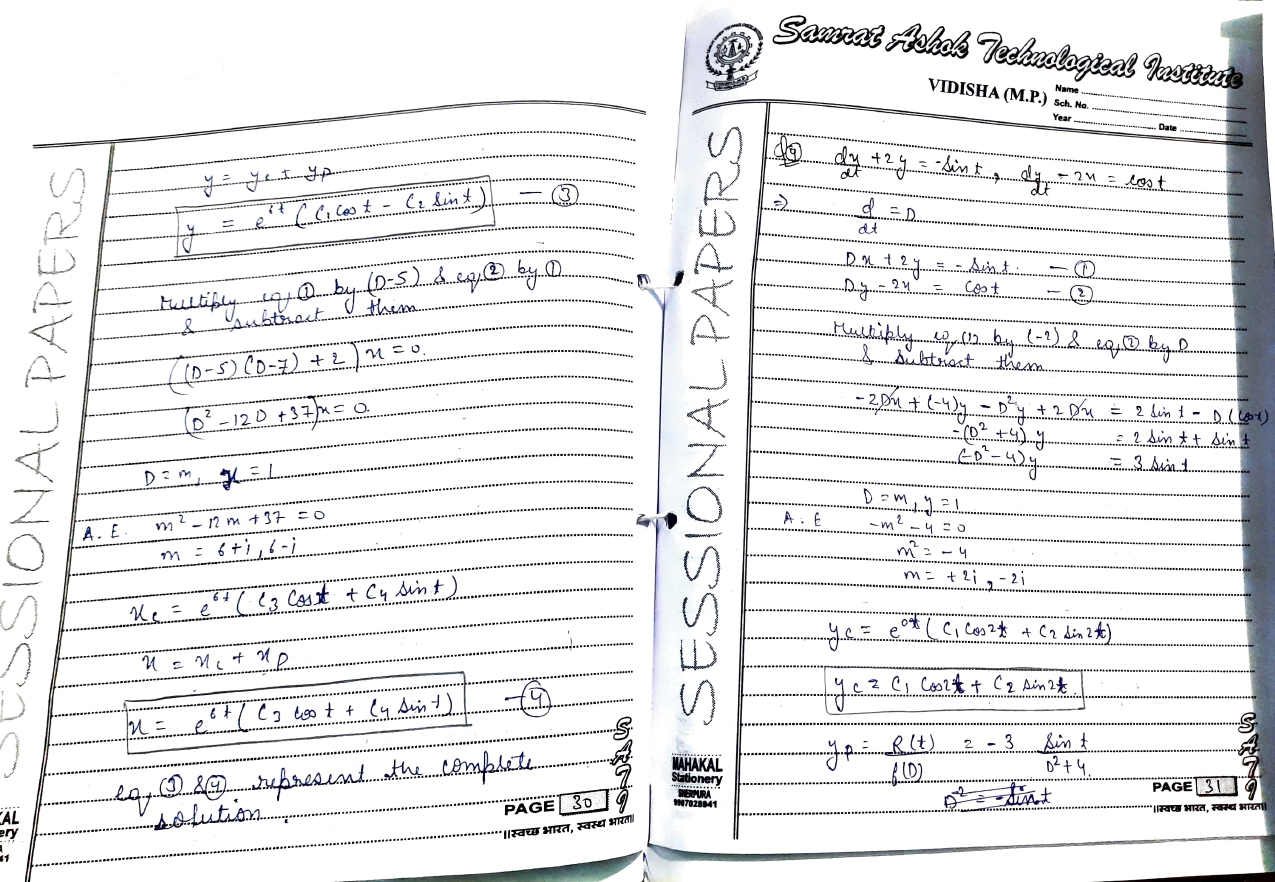 SESSIONAL PAPERS
y = yc + yp
y = e^6t (C1 Cos t - C2 Sin t) — ③
Multiply eq. ① by (D-5) & eq. ② by ①
& Subtract them
((D-5) (D-7) + 2) x = 0.
(D² - 12D + 37) x = 0
D = m, x = 1
A. E. m² - 12m + 37 = 0
m = 6+i, 6-i
xc = e^6t (C3 Cos t + C4 Sin t)
x = xc + xp
x = e^6t (C3 Cos t + C4 Sin t) — ④
eq. ③ & ④ represent the complete
solution.
SATI
PAGE 30
||स्वच्छ भारत, स्वस्थ भारत||
Samrat Ashok Technological Institute
VIDISHA (M.P.)
Name
Sch. No.
Year Date
SESSIONAL PAPERS
dx/dt + 2y = -Sin t, dy/dt - 2x = Cos t
⇒ d/dt = D
Dx + 2y = - Sin t. — ①
Dy - 2x = Cos t — ②
Multiply eq. (1) by (-2) & eq. ② by D
& Subtract them
-2Dx + (-4)y - D²y + 2Dx = 2 Sin t - D (Cos t)
-(D² + 4) y = 2 Sin t + Sin t
(-D² - 4)y = 3 Sin t
D = m, y = 1
A. E -m² - 4 = 0
m² = -4
m = +2i, -2i
yc = e^0t (C1 Cos 2t + C2 Sin 2t)
yc = C1 Cos 2t + C2 Sin 2t
yp = R(t)/f(D) = -3 Sin t/D²+4
SATI
MAHAKAL
Stationery
SHERPURA
9907028941
PAGE 31
||स्वच्छ भारत, स्वस्थ भारत||